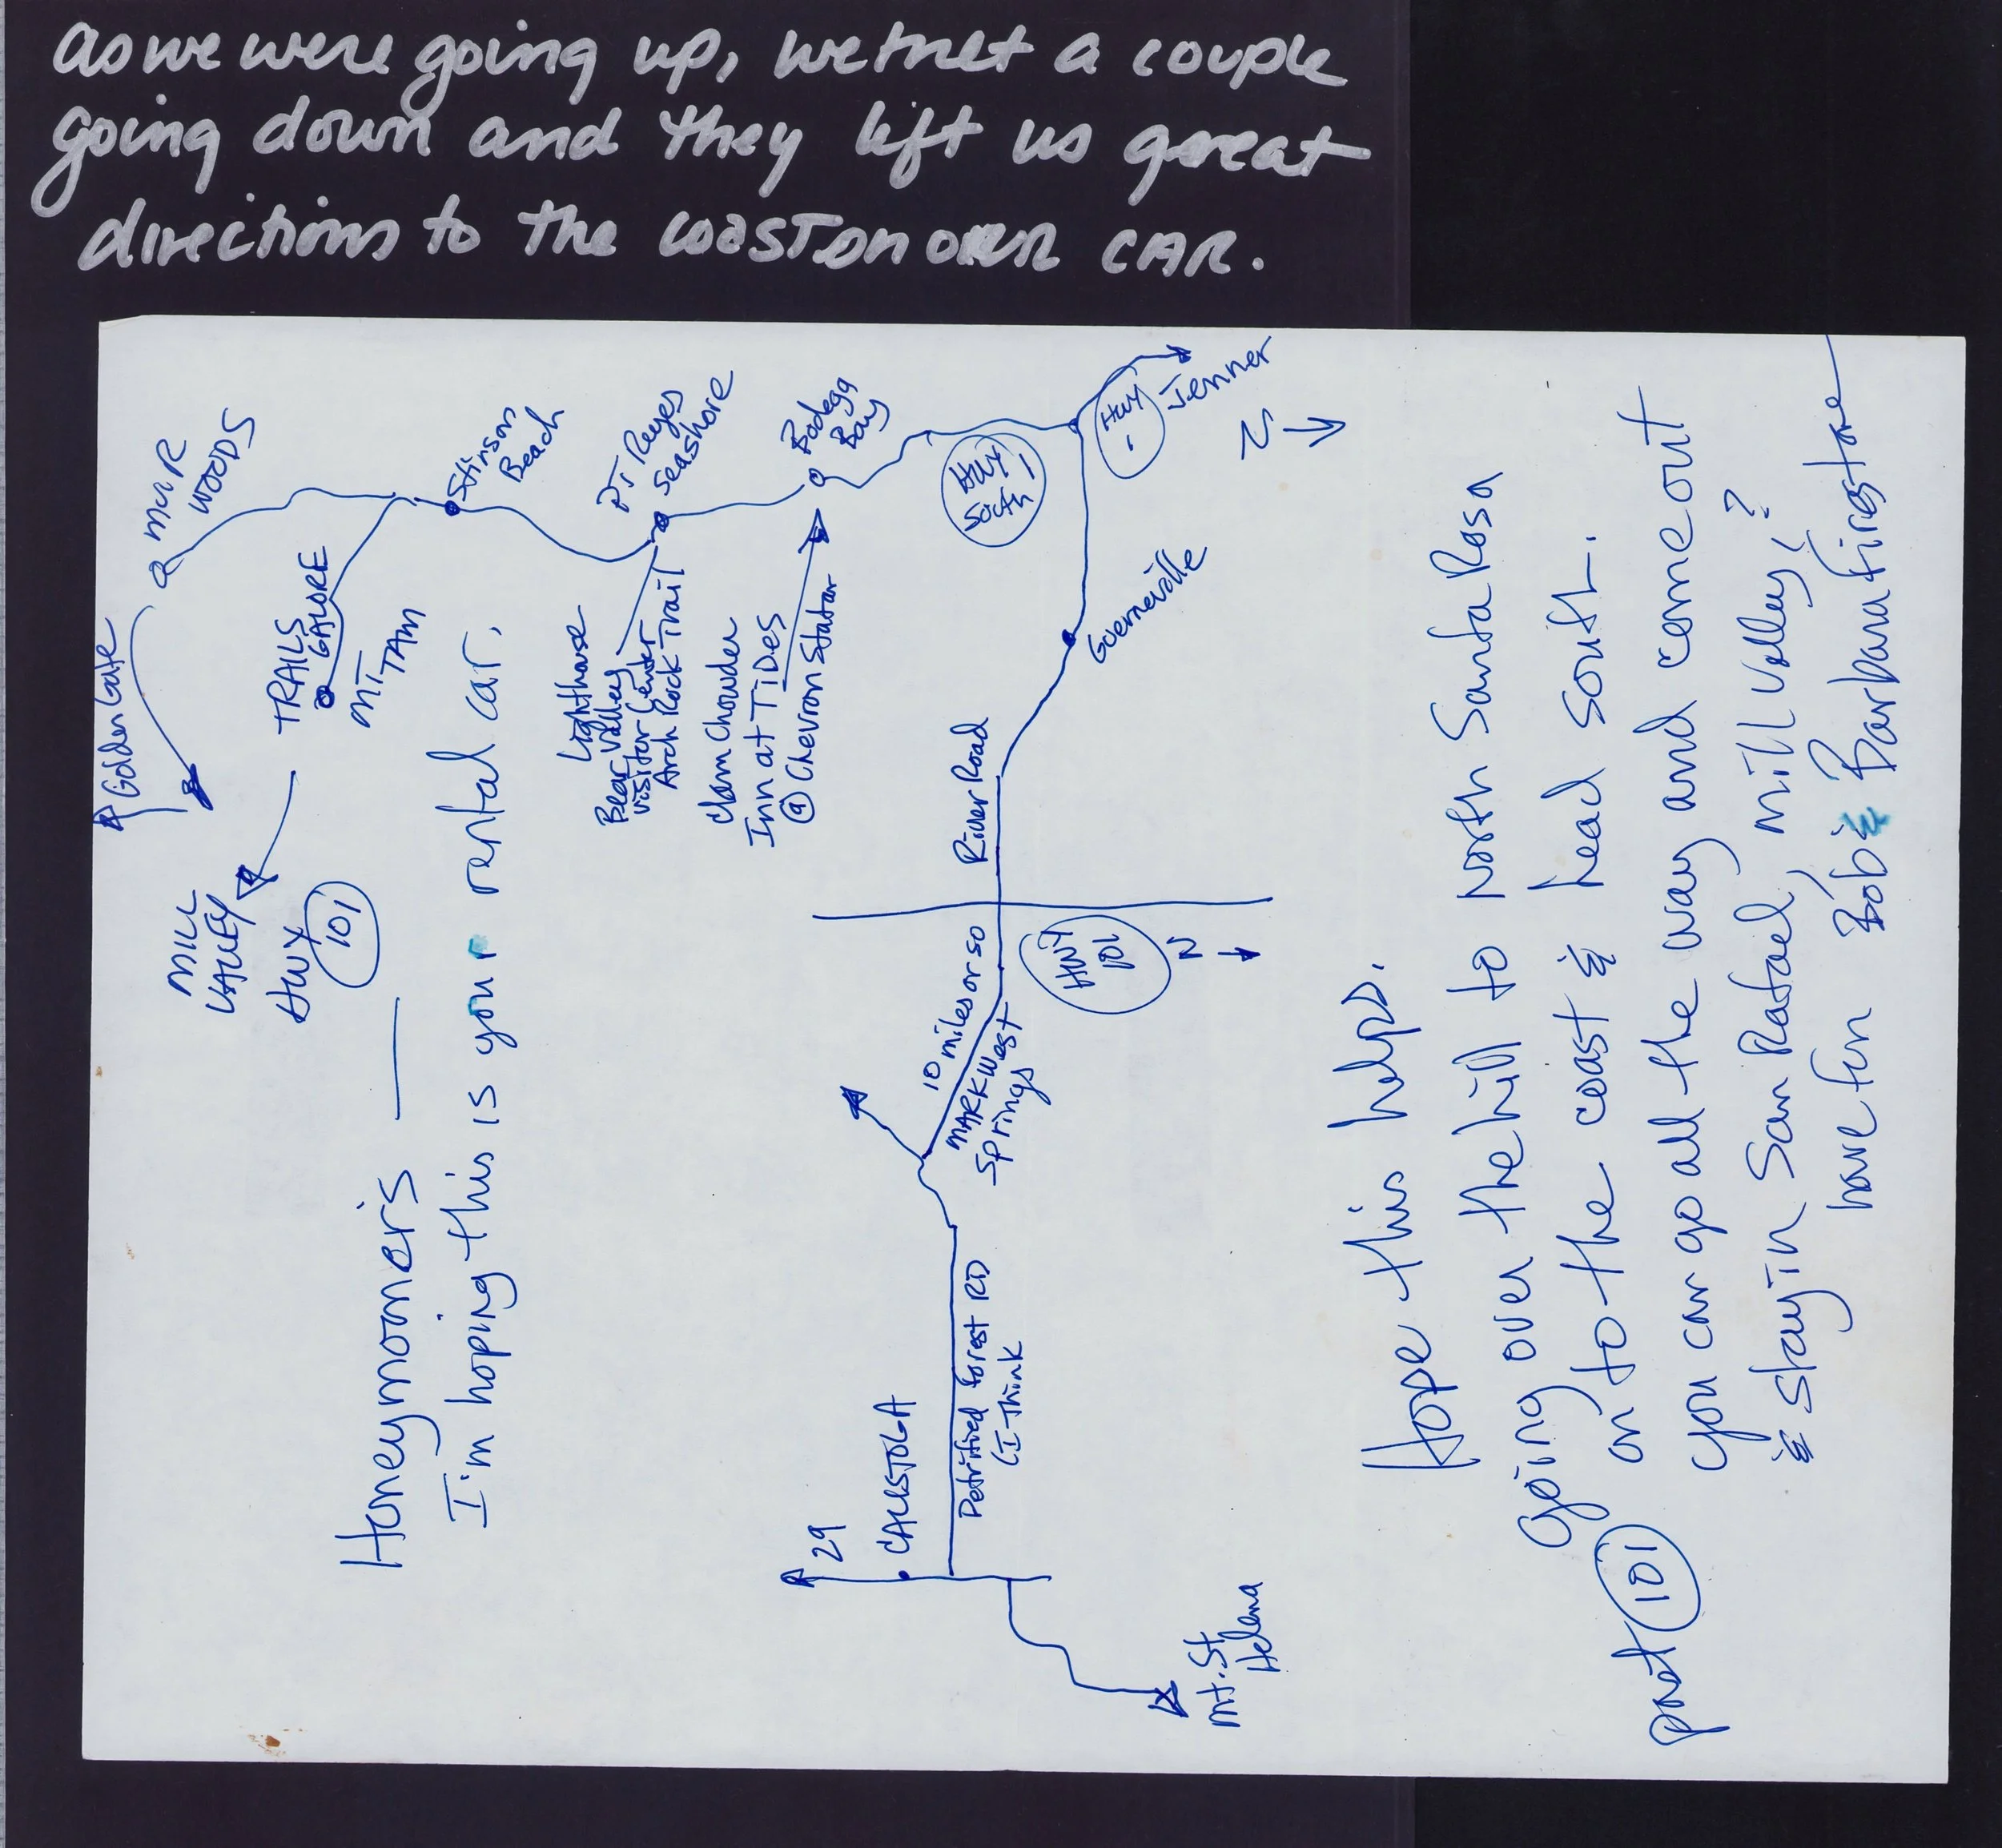 as we were going up, we met a couple
going down and they lift us great
directions to the coast on our CAR.
Honeymooners —
I'm hoping this is your rental car.
Golden Gate
MUR
WOODS
Stinson
Beach
TRAILS
GALORE
MT
TAM
MILL
VALLEY
HWY
101
PT Reyes
Seashore
Lighthouse
Bear Valley
Visitor Center
Arch Rock Trail
Bodega
Bay
Clam Chowder
Inn at TiDES
@ Chevron Station
HWY 1
South
HWY
Jenner
N
Guerneville
River Road
HWY
101
N
10 miles or so
MARK West
Springs
Petrified Forest RD
(I-Think
CALISTOGA
29
Mt. St.
Helena
Hope this helps.
Going over the hill to North Santa Rosa
past 101 on to the coast & head south.
You can go all the way and come out
& stay in San Rafael, Mill Valley!?
have fun Bob & Barbara Firestone